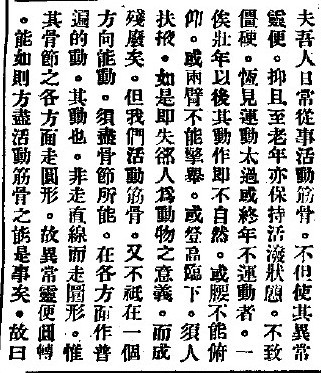 夫吾人日常從事活動筋骨。不但使其異常
靈便。抑且至老年亦保持活潑狀態。不致
僵硬。恆見運動太過或終年不運動者。一
俟壯年以後其動作即不自然。或腰不能俯
仰。或兩臂不能擎舉。或登高臨下。須人
扶掖。如是即失卻人爲動物之意義。而成
殘廢矣。但我們活動筋骨。又不祇在一個
方向能動。須盡骨節所能。在各方面作普
遍的動。其動也。非走直線而走圓形。惟
其骨節之各方面走圓形。故異常靈便圓轉
。能如則方盡活動筋骨之能是事矣。故曰